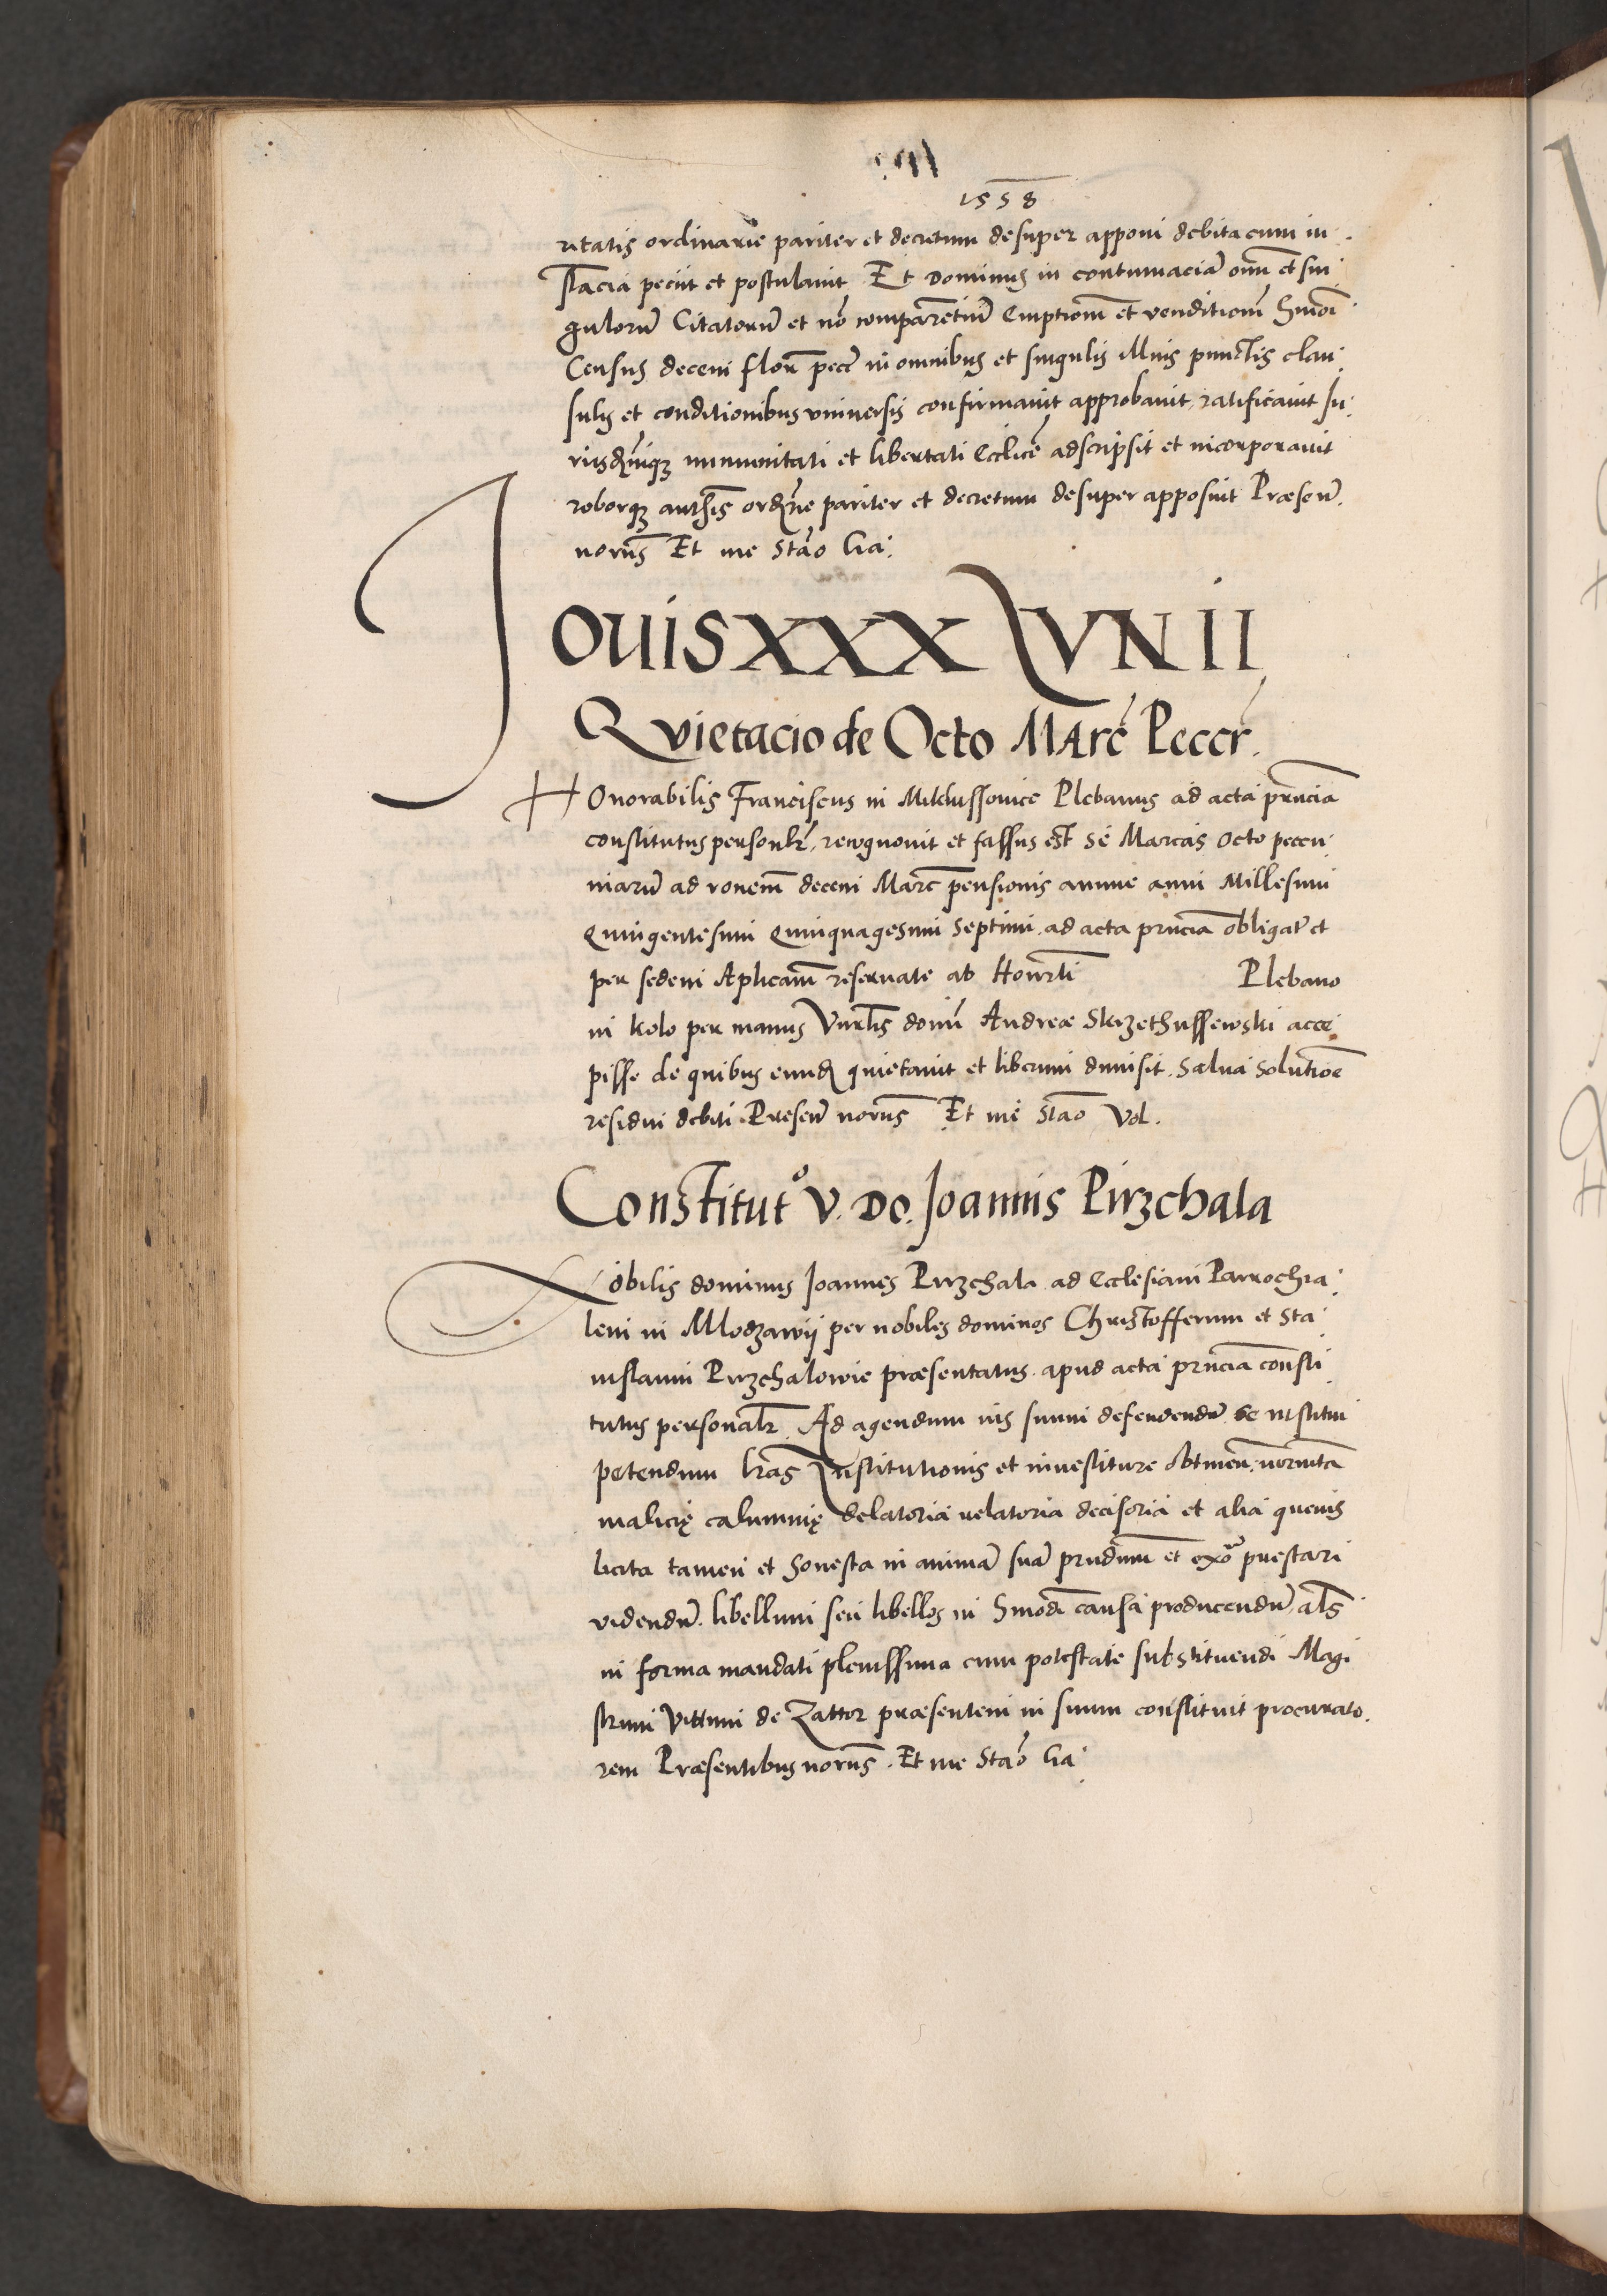 1558
ritatis ordinarie pariter et decretum desuper apponi debita cum in
stacia peciit et postulavit Et Dominus in contumaciā oīnū et sin
gulorū Citatorū et nō comparētiū Emptionē et venditionē Hmōi
Census decem florē pecē in omnibus et singulis illius punctis clau
sulis et conditionibus vniuersis confirmauit approbauit, ratificauit Iu
immunitati et libertati Ecclīcē adscripsit et incorporauit
roborqꝫ ordīrie pariter et decretum desuper apposuit Præsenī.
Et me Stāo Ga.
IOUIS XXX IVNII
Qvietacio de Octo MArc̄ Peccr̄.
HOnorabilis Franciscus in Milchussouice Plebanus ad acta pr̄ncia
constitutus personlr̄, recognouit et fassus est se Marcas octo peccu
niarū ad ronem̄ decem Marc̄ pensionis annue anni Millesimi
Quingentesimi Quinquagesimi Septimi ad acta prnciā obligat̄ et
per sedem Aplicam̄ reseruate ab Honrli Plebano
in Kolo per manus Vnrlis domī Andreæ Skrzethussewski acce
pisse de quibus eund̄ quietauit et liberum dimisit. Salua solutiōe
residui debiti. Presen̄ norus̄ Et me Stāo Vol.
Constitutº V. Do. Joannis Pirzchala
Nobilis dominus Joannes Pirzchala ad Ecclesiam Parrochia
lem in Mlodzawij per nobiles dominos Christofferum et Sta
nislaum Pirzchalowie præsentatus apud acta prncia consti
tutus personalr̄. Ad agendum ius suum defendendū se institui
petendum lrās Institutionis et inuestiture obtinen̄.
malicię calumnię delatoria relatoria decisoria et alia queuis
licita tamen et honesta in animā suā et præstari
videndū. libellum seu libellos in Hmodi causa producendū, als̄
in forma mandati plenissima cum potestate substituendi Magi
strum Vittum de Zattor præsentem in suum constituit procurato
rem Præsentibus norus̄. Et me Stāo Ga.